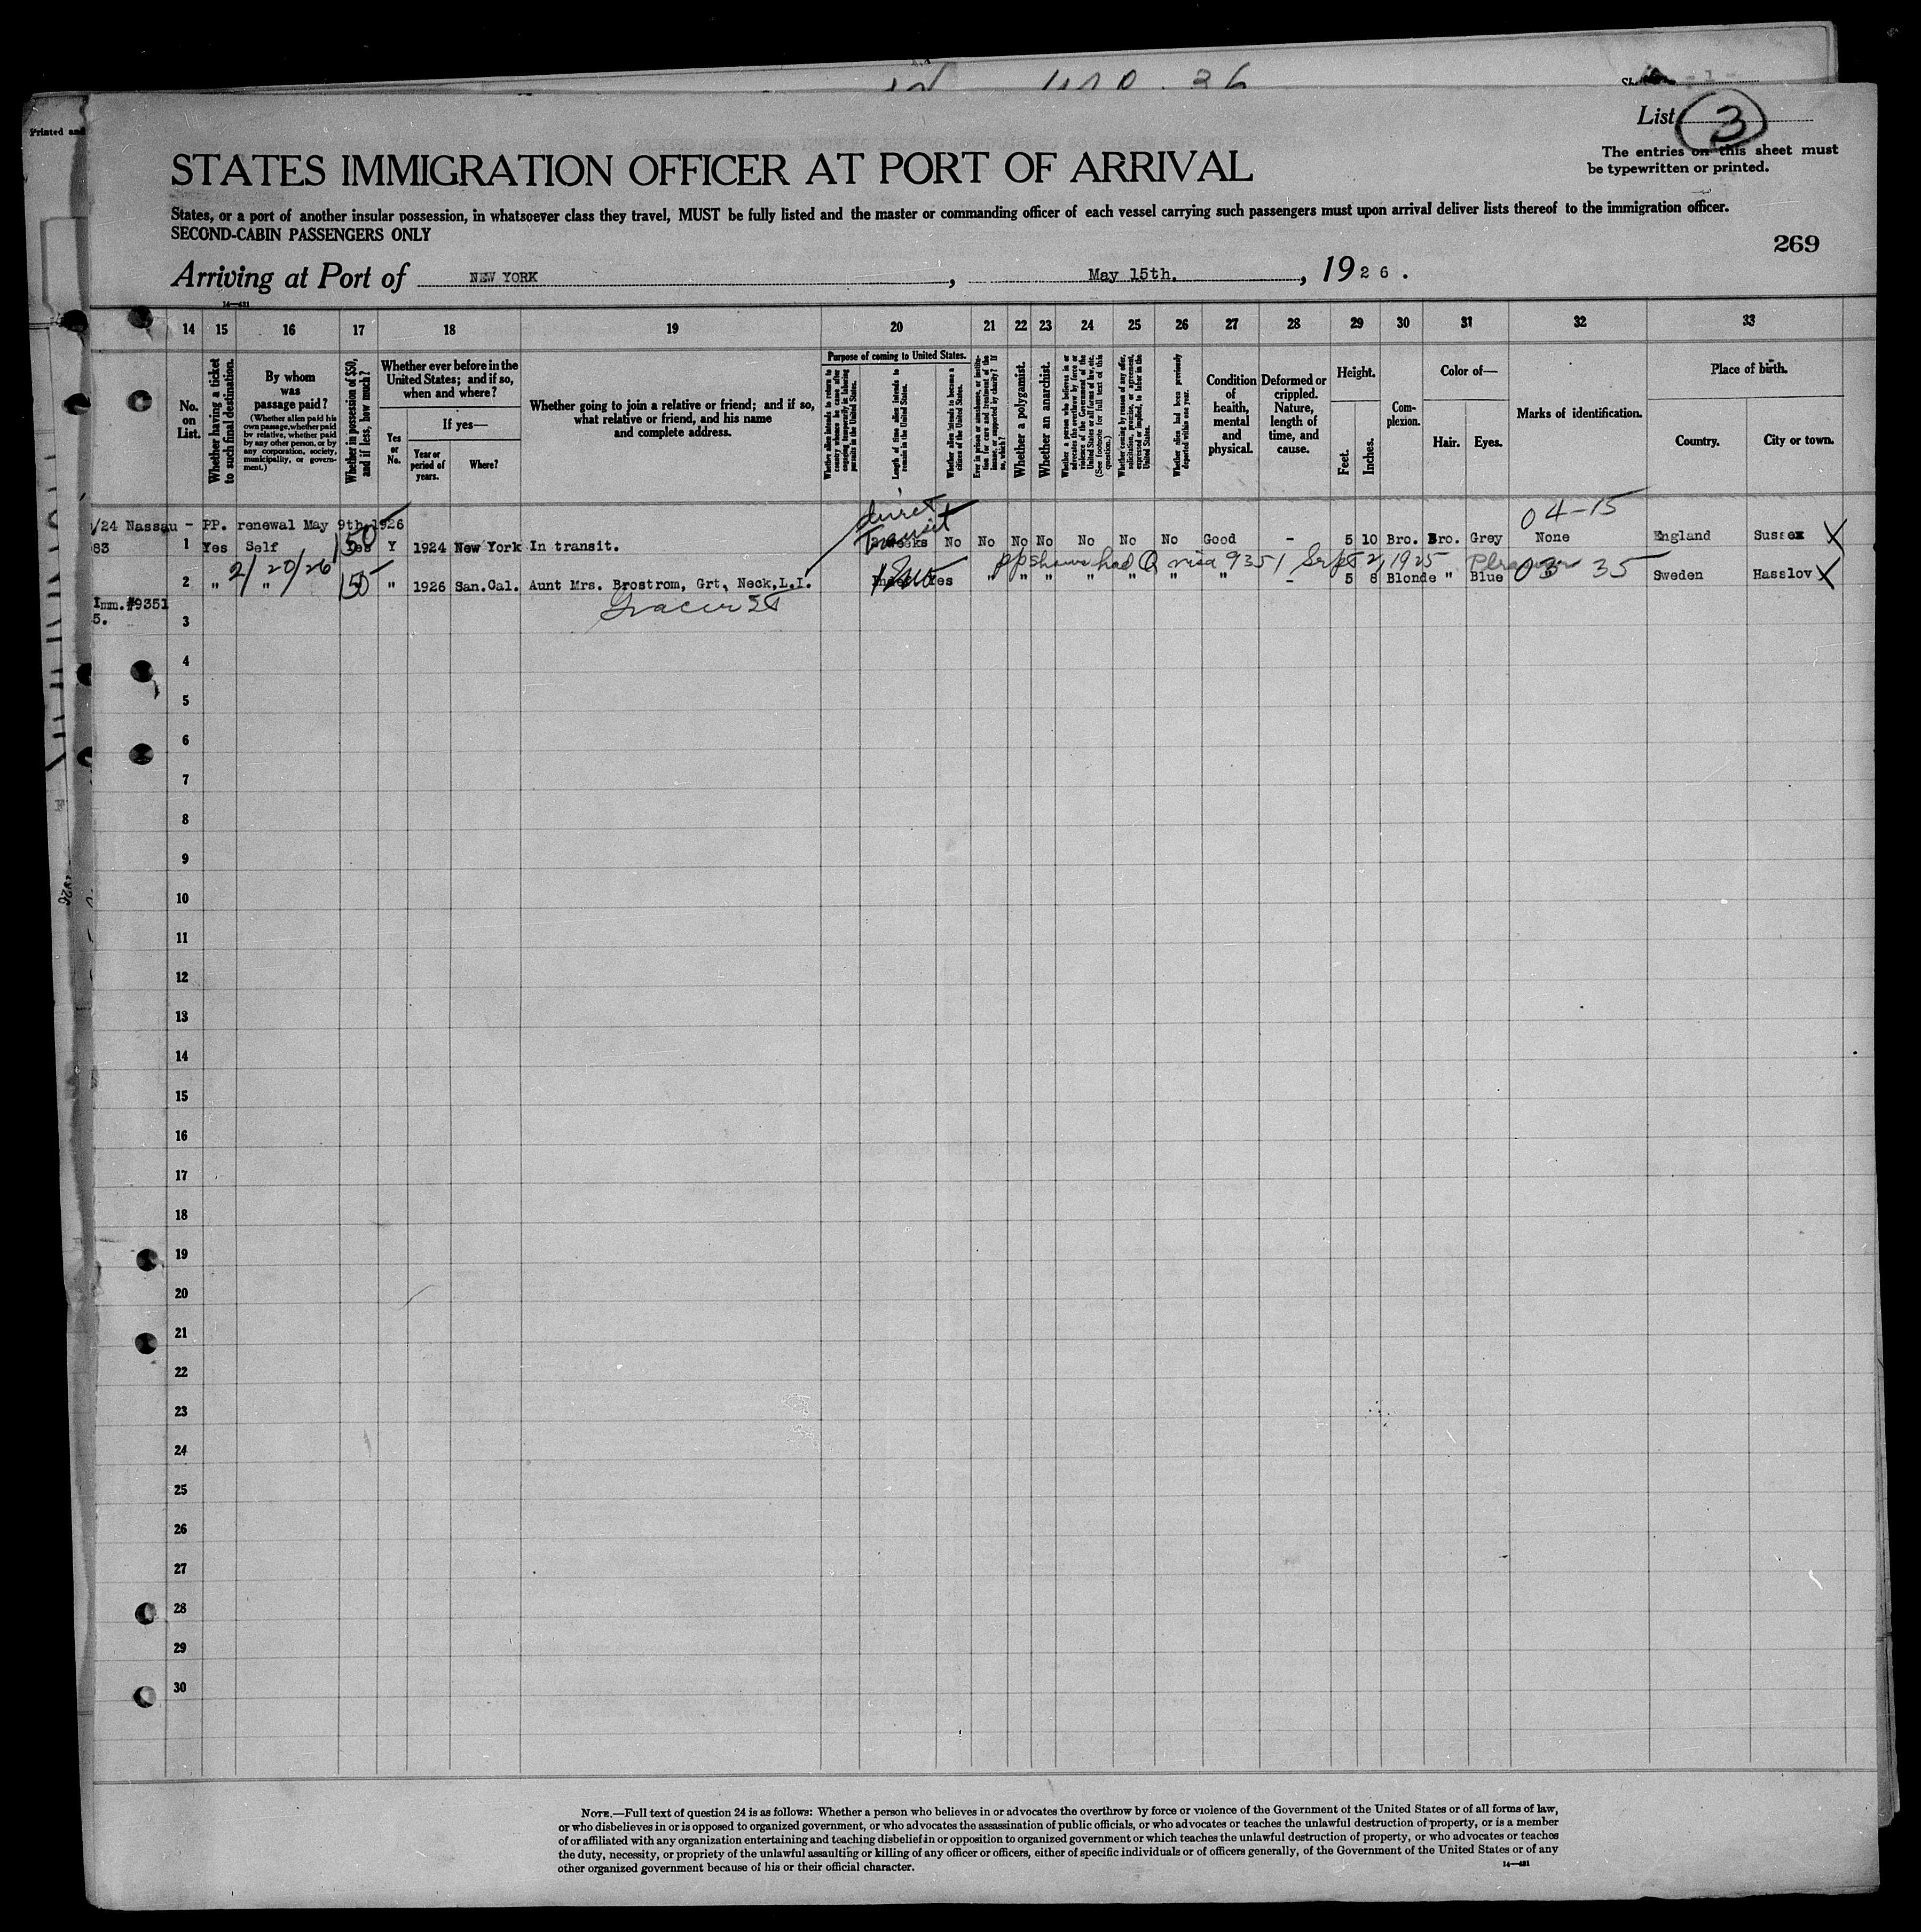 List 3
Printed and
The entries on this sheet must
be typewritten or printed.
STATES IMMIGRATION OFFICER AT PORT OF ARRIVAL
States, or a port of another insular possession, in whatsoever class they travel, MUST be fully listed and the master or commanding officer of each vessel carrying such passengers must upon arrival deliver lists thereof to the immigration officer.
SECOND-CABIN PASSENGERS ONLY
269
Arriving at Port of NEW YORK, May 15th., 1926.
14—431
14 15 16 17 18 19 20 21 22 23 24 25 26 27 28 29 30 31 32 33
No. on List.
Whether having a ticket to such final destination.
By whom was passage paid?
(Whether alien paid his own passage, whether paid by relative, whether paid by any other person, or by any corporation, society, municipality, or government.)
Whether in possession of $50, and if less, how much?
Whether ever before in the United States; and if so, when and where?
Yes or No.
If yes—
Year or period of years.
Where?
Whether going to join a relative or friend; and if so, what relative or friend, and his name and complete address.
Purpose of coming to United States.
Whether alien intends to return to country whence he came after engaging temporarily in laboring pursuits in the United States.
Length of time alien intends to remain in the United States.
Whether alien intends to become a citizen of the United States.
Ever in prison or almshouse, or institution for care and treatment of the insane, or supported by charity? If so, which?
Whether a polygamist.
Whether an anarchist.
Whether a person who believes in or advocates the overthrow by force or violence of the Government of the United States or all forms of law, etc. (See footnote for full text of this question.)
Whether coming by reason of any offer, solicitation, promise, or agreement, expressed or implied, to labor in the United States.
Whether alien had been previously deported within one year.
Condition of health, mental and physical.
Deformed or crippled. Nature, length of time, and cause.
Height.
Feet.
Inches.
Complexion.
Color of—
Hair.
Eyes.
Marks of identification.
Place of birth.
Country.
City or town.
/24 Nassau - PP. renewal May 9th,1926
direct transit
04-15
83 1 Yes Self Yes 50 Y 1924 New York In transit. No No No No No No No Good - 5 10 Bro. Bro. Grey None England Sussex X
2/20/26 pp shows had Q visa 9351 Sept 2, 1925
2 " " 50 " 1926 San.Cal. Aunt Mrs. Brostrom, Grt. Neck,L.I. Yes " " " " " " " - 5 8 Blonde " Blue 03 35 Sweden Hasslov X
Imm.#9351
5.
3
4
5
6
7
8
9
10
11
12
13
14
15
16
17
18
19
20
21
22
23
24
25
26
27
28
29
30
NOTE.—Full text of question 24 is as follows: Whether a person who believes in or advocates the overthrow by force or violence of the Government of the United States or of all forms of law,
or who disbelieves in or is opposed to organized government, or who advocates the assassination of public officials, or who advocates or teaches the unlawful destruction of property, or is a member
of or affiliated with any organization entertaining and teaching disbelief in or opposition to organized government or which teaches the unlawful destruction of property, or who advocates or teaches
the duty, necessity, or propriety of the unlawful assaulting or killing of any officer or officers, either of specific individuals or of officers generally, of the Government of the United States or of any
other organized government because of his or their official character.
14—431